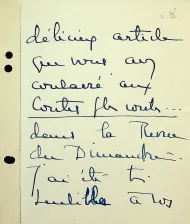 délicieux article
que vous avez
consacré aux
Contes
dans la Revue
du Dimanche.
J'ai été très
sensible à vos